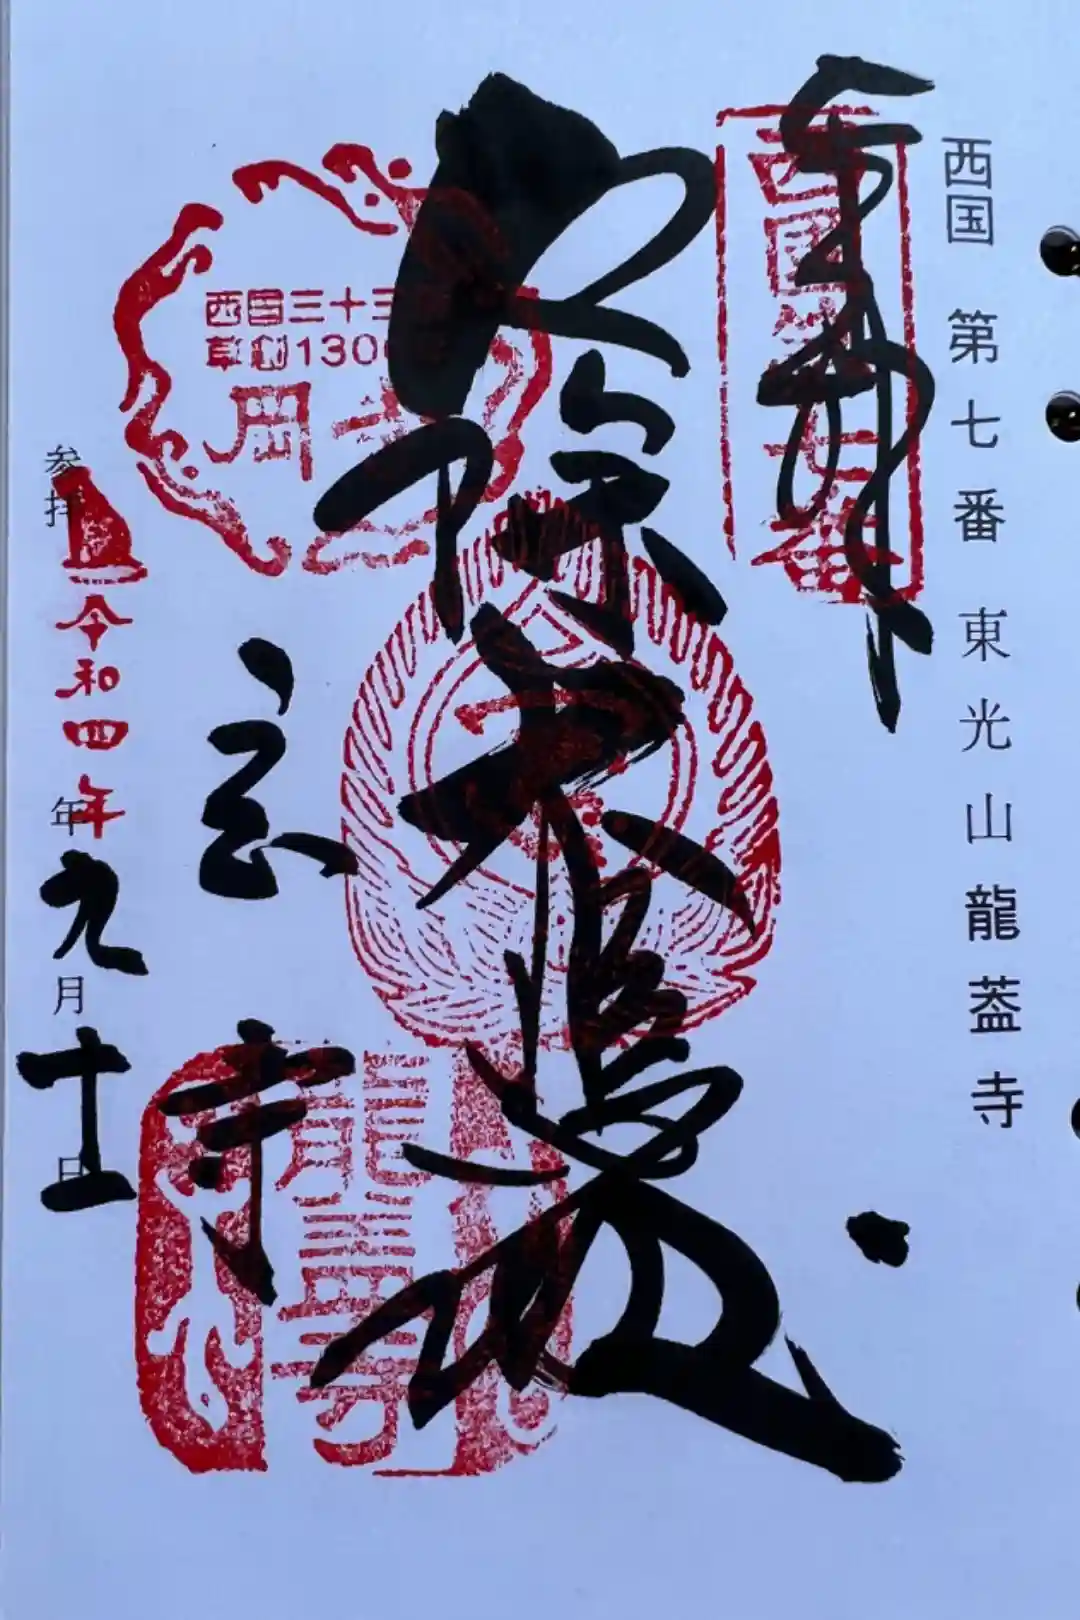 西国 第七番 東光山龍蓋寺
奉拝
西国第七番
西国三十三
草創1300
岡寺
寺
龍蓋寺
参拝 令和四年 年 九月 十一日